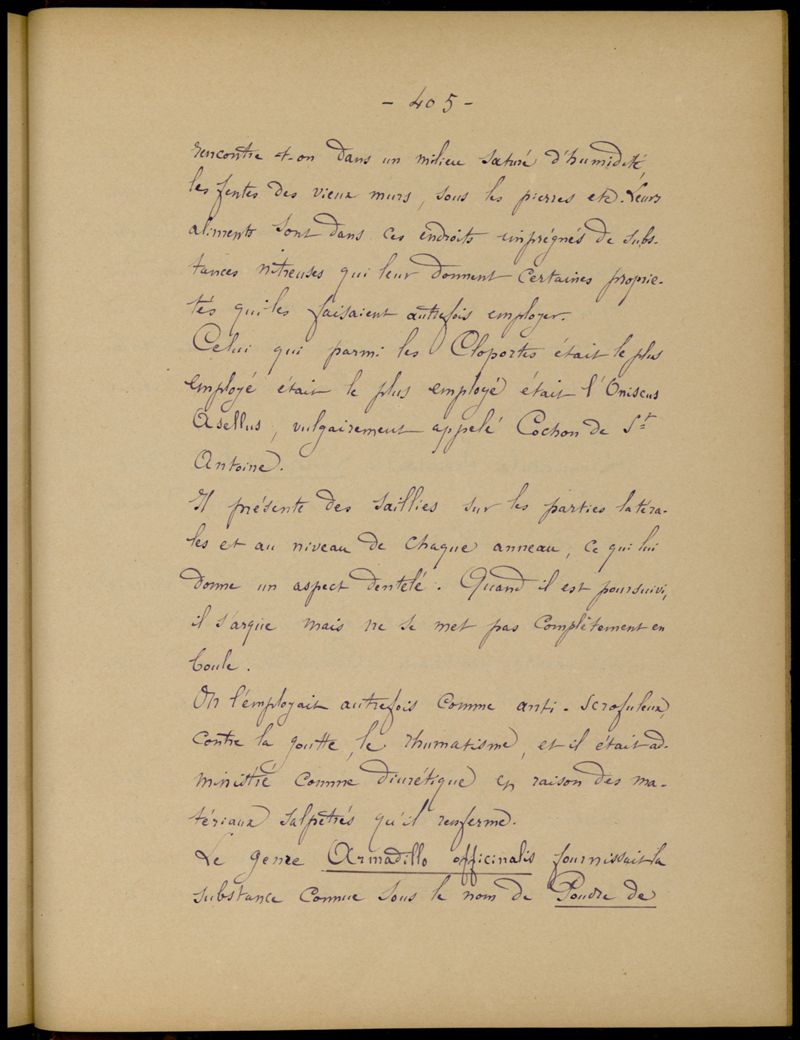 - 405 -
rencontre-t-on dans un milieu saturé d'humidité,
les fentes des vieux murs, sous les pierres etc. Leurs
aliments sont dans ces endroits imprégnés de subs-
tances nitreuses qui leur donnent certaines proprie-
tés qui les faisaient autrefois employer.
Celui qui parmi les Cloportes était le plus
employé était le plus employé était l'Oniscus
Asellus, vulgairement appelé Cochon de St
Antoine.
Il présente des saillies sur les parties latéra-
les et au niveau de chaque anneau, ce qui lui
donne un aspect dentelé. Quand il est poursuivi,
il s'arque mais ne se met pas complètement en
boule.
On l'employait autrefois comme anti-scrofuleux,
contre la goutte, le rhumatisme, et il était ad-
ministré comme diurétique en raison des ma-
tériaux salpétrés qu'il renferme.
Le genre Armadillo officinalis fournissait la
substance connue sous le nom de Poudre de